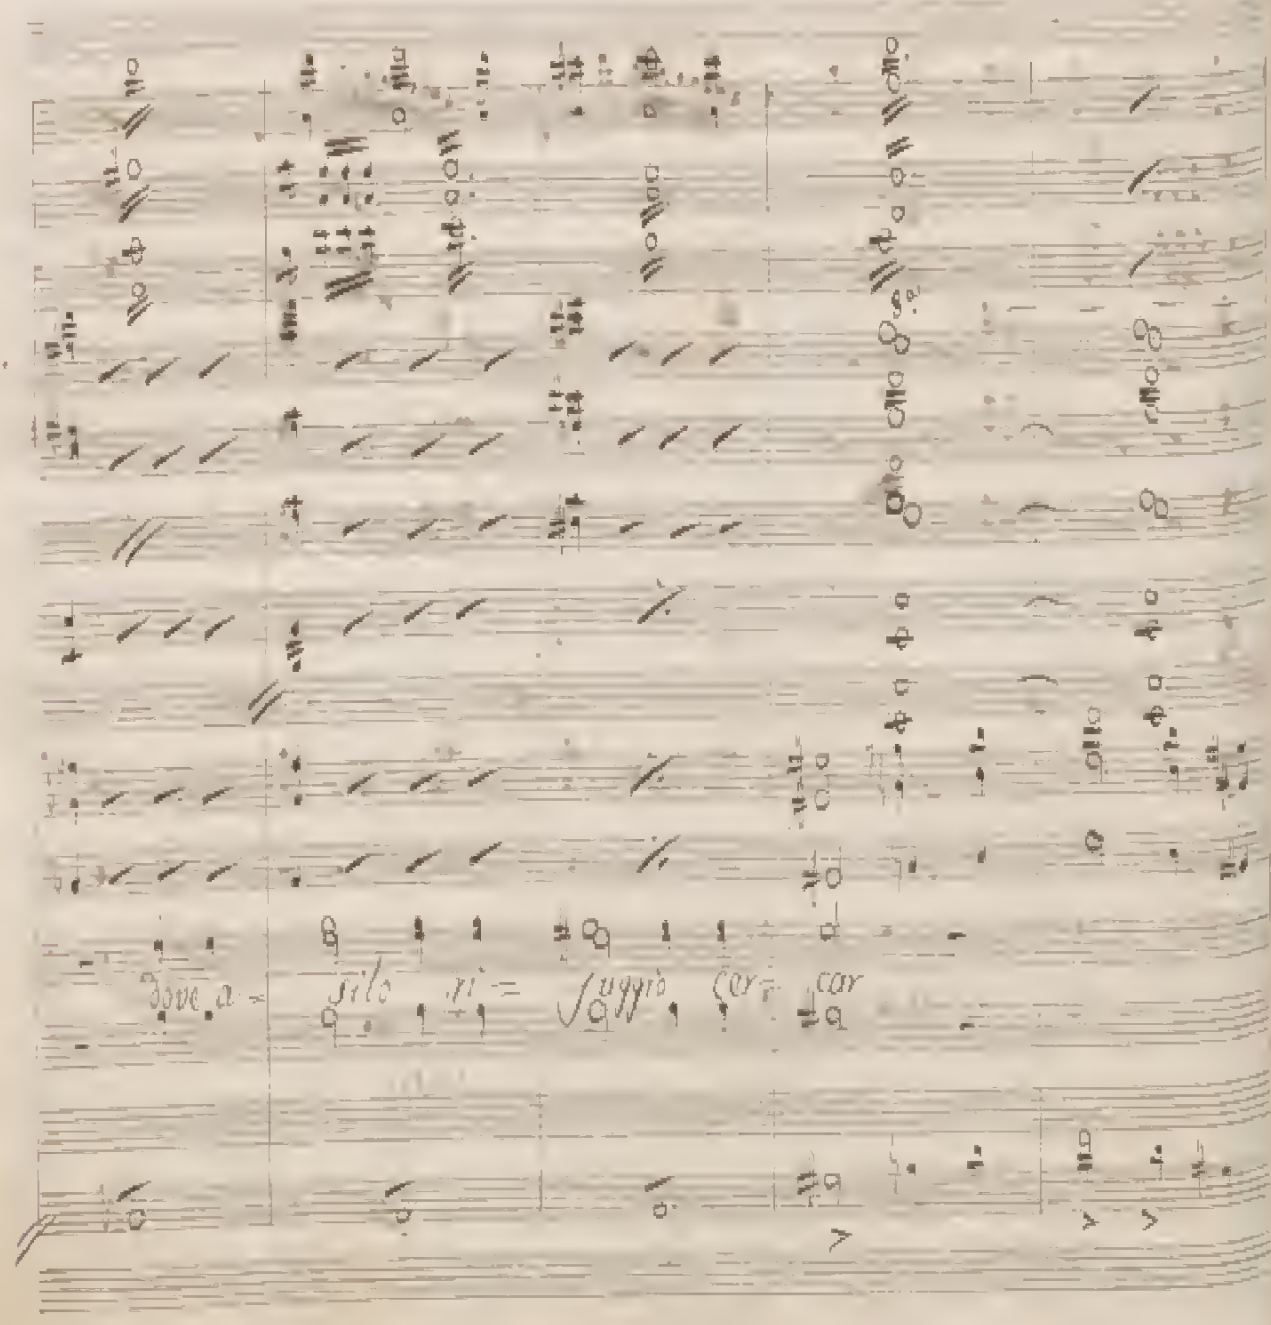 dove a= silo ri= fuggio cer= car